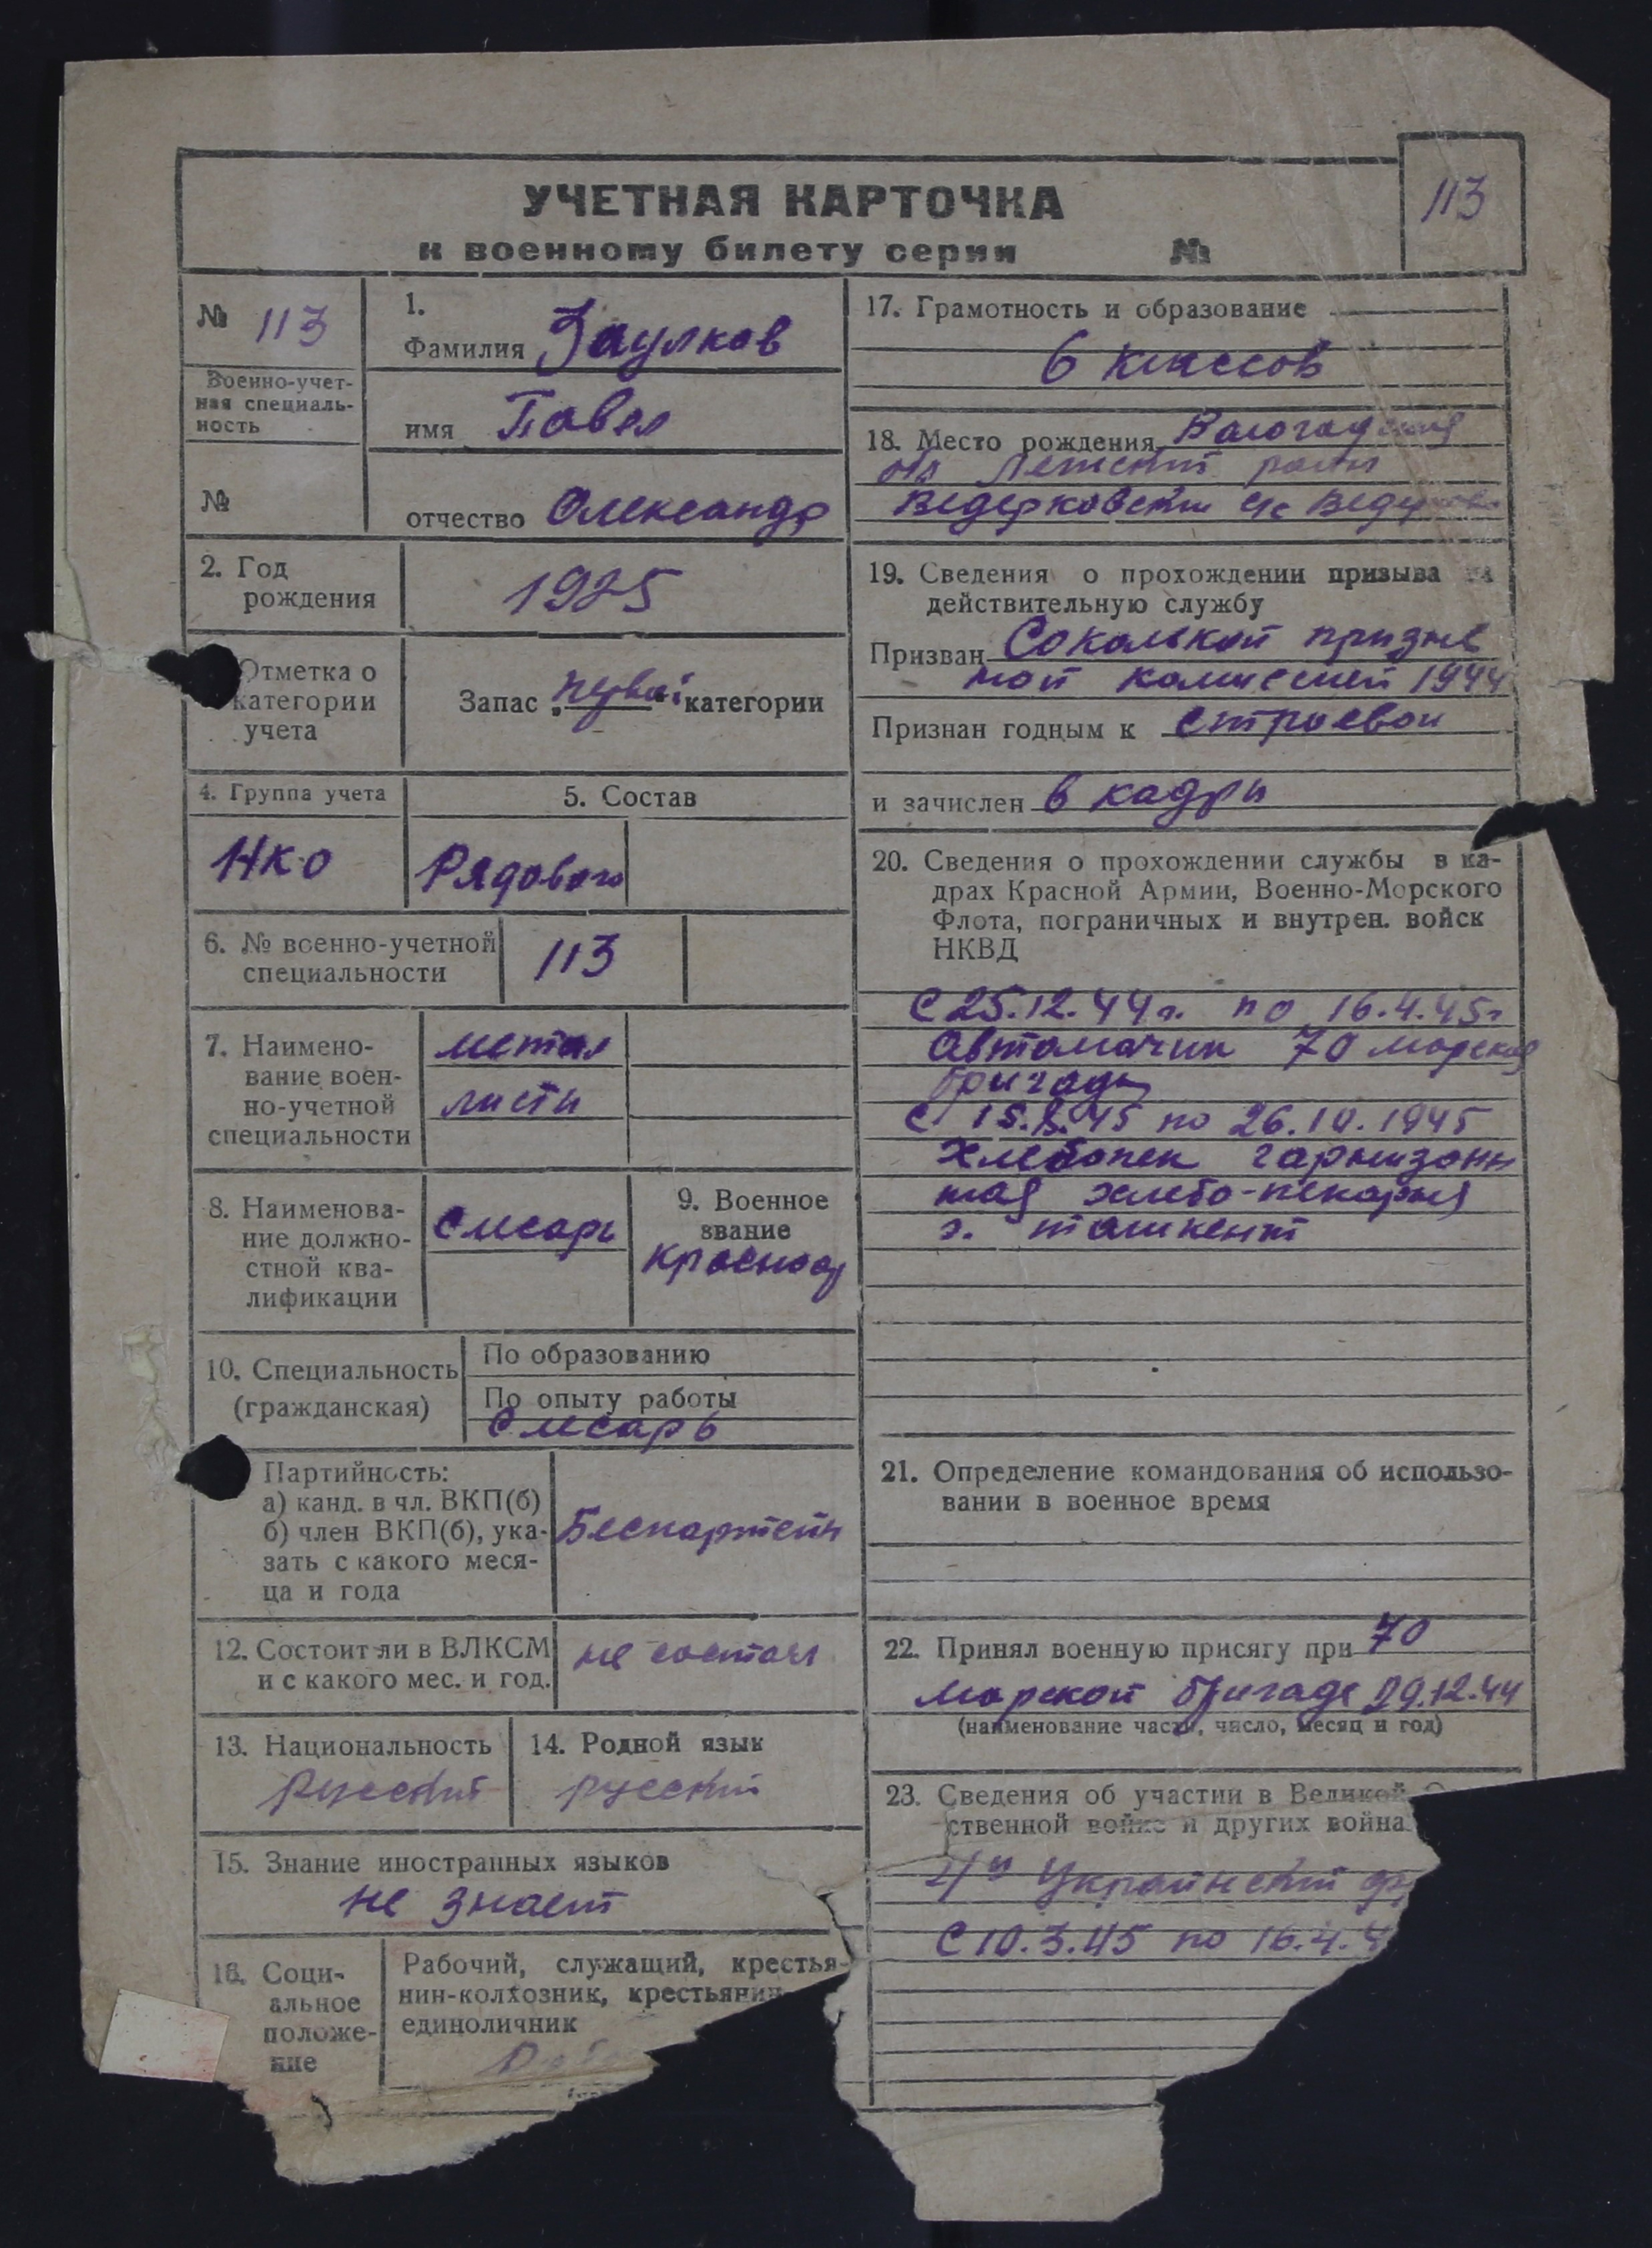 УЧЕТНАЯ КАРТОЧКА
к военному билету серии №
113
№ 113
Военно-учет-
ная специаль-
ность
№
1.
Фамилия Заулков
имя Павел
отчество Олександр
2. Год
рождения
1925
Отметка о
категории
учета
Запас „первой“ категории
4. Группа учета
НКО
5. Состав
Рядового
6. № военно-учетной
специальности
113
7. Наимено-
вание воен-
но-учетной
специальности
метал
листы
8. Наименова-
ние должно-
стной ква-
лификации
Слесарь
9. Военное
звание
Красноар
10. Специальность
(гражданская)
По образованию
По опыту работы
Слесарь
Партийность:
а) канд. в чл. ВКП(б)
б) член ВКП(б), ука-
зать с какого меся-
ца и года
Беспартейн
12. Состоит ли в ВЛКСМ
и с какого мес. и год.
не состоял
13. Национальность
Русский
14. Родной язык
русский
15. Знание иностранных языков
не знает
16. Соци-
альное
положе-
ние
Рабочий, служащий, крестья-
нин-колхозник, крестьянин
единоличник
17. Грамотность и образование
6 классов
18. Место рождения Вологодская
обл Лежский район
Ведерковский с/с Ведерково
19. Сведения о прохождении призыва на
действительную службу
Призван Сокольской призыв
ной комиссией 1944
Признан годным к строевой
и зачислен в кадры
20. Сведения о прохождении службы в ка-
драх Красной Армии, Военно-Морского
Флота, пограничных и внутрен. войск
НКВД
С 25.12.44 г. по 16.4.45 г
Автоматчик 70 морская
бригады
С 15.8.45 по 26.10.1945
Хлебопек гарнизонн
ная хлебо-пекарня
г. ташкент
21. Определение командования об использо-
вании в военное время
22. Принял военную присягу при 70
морской бригаде 29.12.44
(наименование части, число, месяц и год)
23. Сведения об участии в Великой
ственной войне и других война
4й Украинский ф
С 10.3.45 по 16.4.4